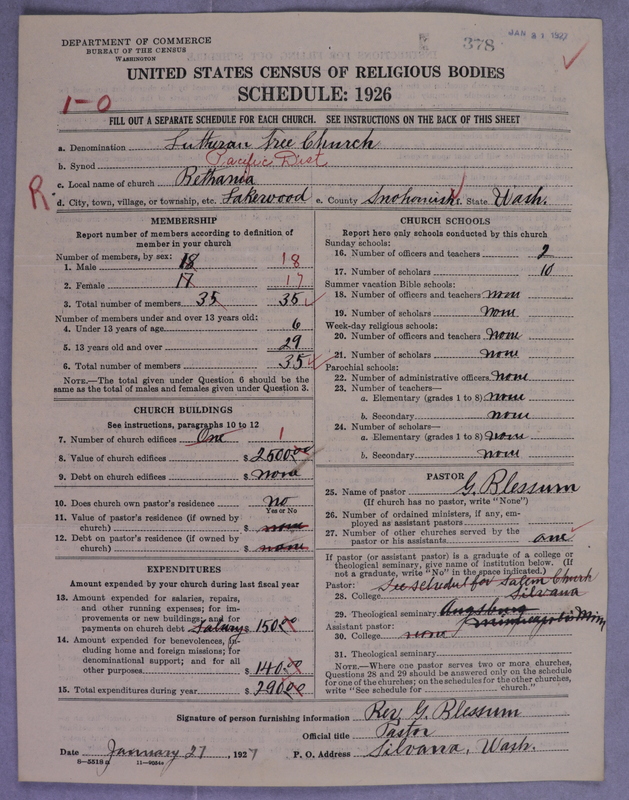 DEPARTMENT OF COMMERCE
BUREAU OF THE CENSUS
WASHINGTON
378
JAN 31 1927
UNITED STATES CENSUS OF RELIGIOUS BODIES
SCHEDULE: 1926
1-0
FILL OUT A SEPARATE SCHEDULE FOR EACH CHURCH. SEE INSTRUCTIONS ON THE BACK OF THIS SHEET
a. Denomination Lutheran Free Church
b. Synod Pacific Dist
c. Local name of church Bethania
R.
d. City, town, village, or township, etc. Lakewood e. County Snohomish f. State Wash.
MEMBERSHIP
Report number of members according to definition of
member in your church
Number of members, by sex:
1. Male 18 18
2. Female 17 17
3. Total number of members 35 35
Number of members under and over 13 years old:
4. Under 13 years of age 6
5. 13 years old and over 29
6. Total number of members 35
NOTE.—The total given under Question 6 should be
same as the total of males and females given under Question 3.
CHURCH BUILDINGS
See instructions, paragraphs 10 to 12
7. Number of church edifices One 1
8. Value of church edifices $ 2500.00
9. Debt on church edifices $ none
10. Does church own pastor's residence No
Yes or No
11. Value of pastor's residence (if owned by
church) $ none
12. Debt on pastor's residence (if owned by
church) $ none
EXPENDITURES
Amount expended by your church during last fiscal year
13. Amount expended for salaries, repairs,
and other running expenses; for im-
provements or new buildings; and for
payments on church debt Salary $ 150.00
14. Amount expended for benevolences, in-
cluding home and foreign missions; for
denominational support; and for all
other purposes $ 140.00
15. Total expenditures during year $ 290.00
CHURCH SCHOOLS
Report here only schools conducted by this church
Sunday schools:
16. Number of officers and teachers 2
17. Number of scholars 10
Summer vacation Bible schools:
18. Number of officers and teachers none
19. Number of scholars none
Week-day religious schools:
20. Number of officers and teachers none
21. Number of scholars none
Parochial schools:
22. Number of administrative officers none
23. Number of teachers—
a. Elementary (grades 1 to 8) none
b. Secondary none
24. Number of scholars—
a. Elementary (grades 1 to 8) none
b. Secondary none
PASTOR
25. Name of pastor G. Blessum
(If church has no pastor, write "None")
26. Number of ordained ministers, if any, em-
ployed as assistant pastors
27. Number of other churches served by the
pastor or his assistants one
If pastor (or assistant pastor) is a graduate of a college or
theological seminary, give name of institution below. (If
not a graduate, write "No" in the space indicated.)
Pastor: See schedule for Salem Church
28. College Silvana
29. Theological seminary Augsburg
Minneapolis Minn
Assistant pastor:
30. College none
31. Theological seminary
NOTE.—Where one pastor serves two or more churches,
Questions 28 and 29 should be answered only on the schedule
for one of the churches; on the schedules for the other churches,
write "See schedule for church."
Signature of person furnishing information Rev. G. Blessum
Official title Pastor
Date January 27, 1927 P. O. Address Silvana, Wash.